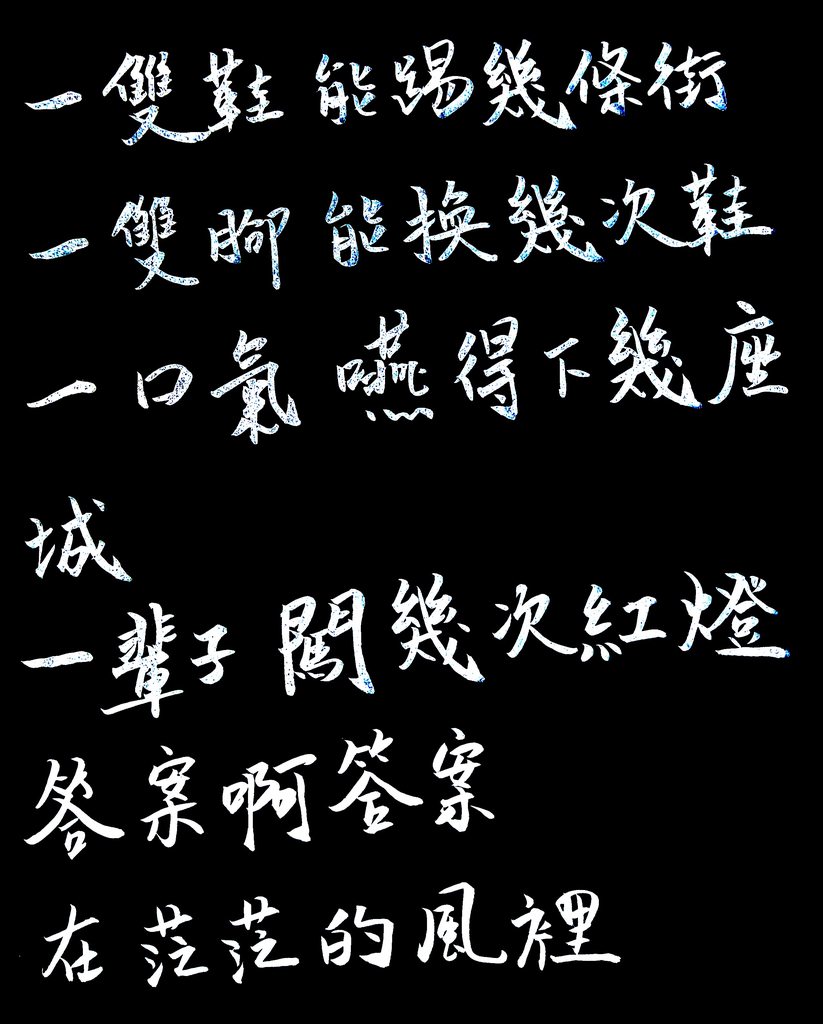 一雙鞋 能踢幾條街
一雙腳 能換幾次鞋
一口氣 嚥得下幾座
城
一輩子 闖幾次紅燈
答案啊答案
在茫茫的風裡